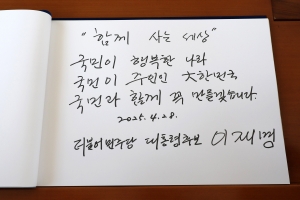 "함께 사는 세상"
국민이 행복한 나라
국민이 주인인 大한민국
국민과 함께 꼭 만들겠습니다.
2025. 4. 28.
더불어민주당 대통령후보 이재명